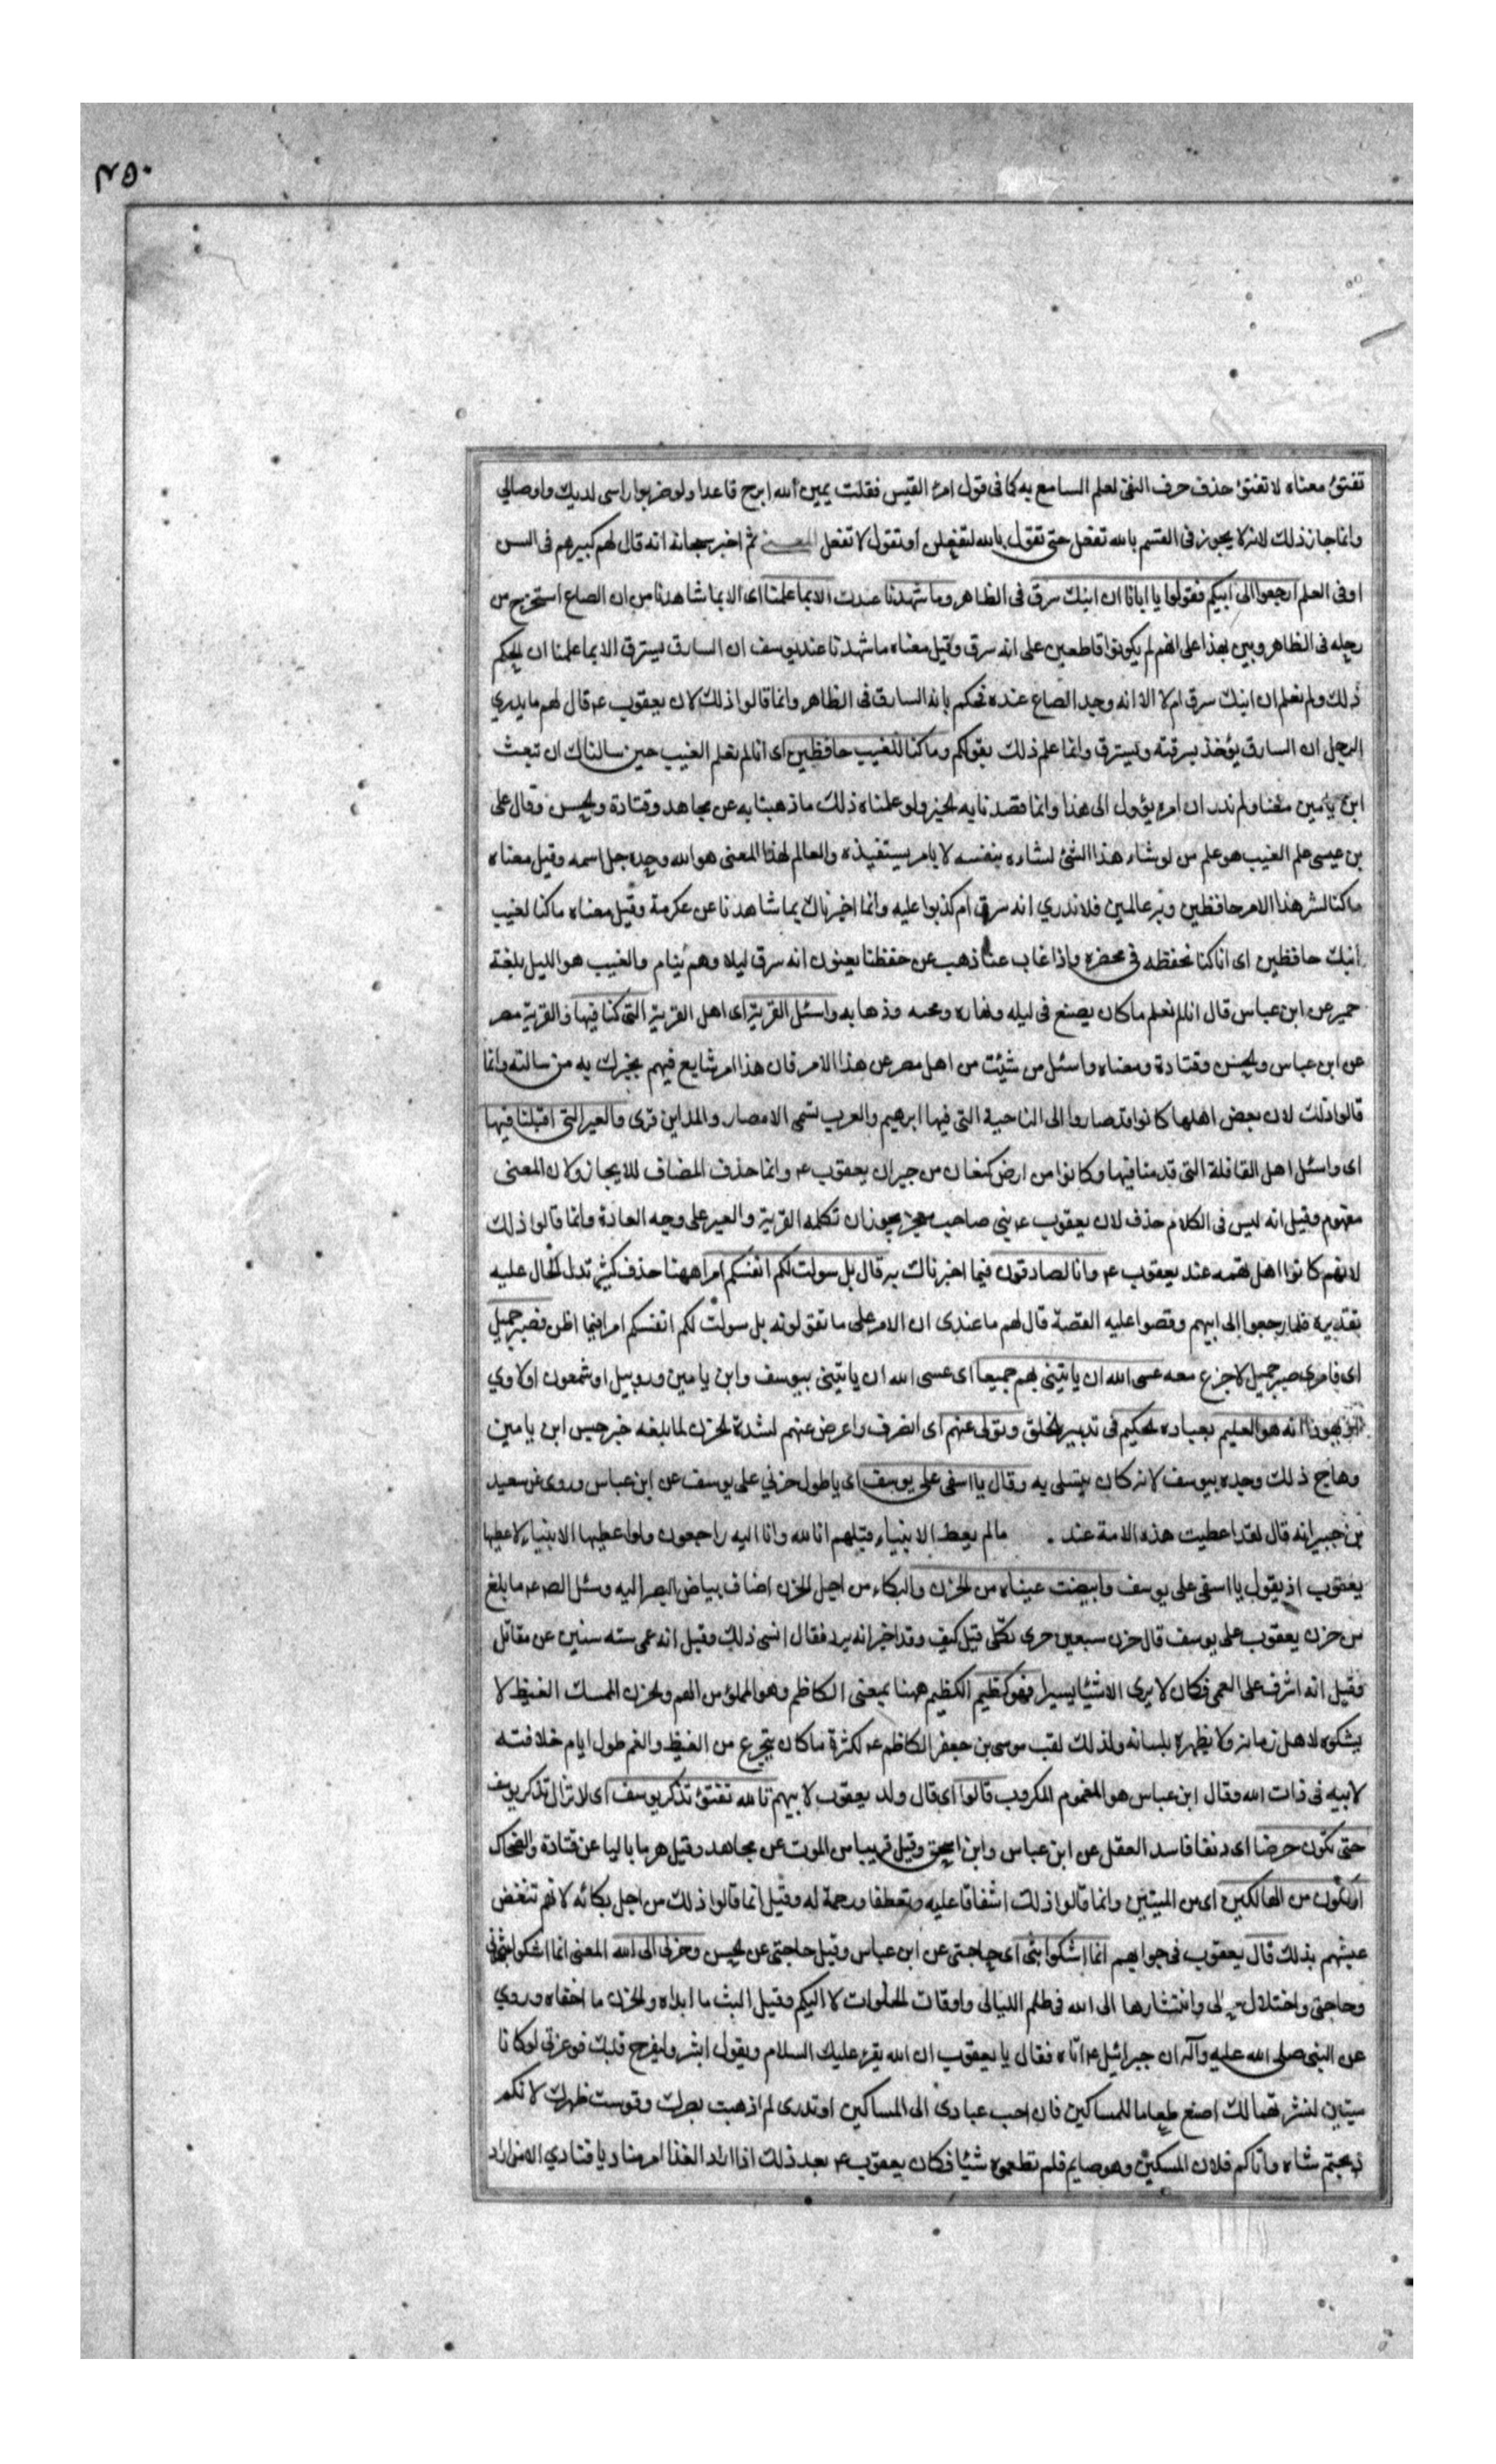 ٤٥٠
تفتؤ معناه لا تفتؤ حذف حرف النفى لعلم السامع به كما فى قول امرء القيس فقلت يمين الله ابرح قاعدا ولو ضربوا راسى لديك واوصالي
وانما جاز ذلك لانه لا يجوز فى القسم بالله تفعل حتى تقول بالله لتفعلن او تقول لا تفعل المعنى ثم اخبر سبحانه انه قال لهم كبيرهم فى السن
او فى العلم ارجعوا الى ابيكم فقولوا يا ابانا ان ابنك سرق فى الظاهر وما شهدنا عندك الا بما علمنا اى الا بما شاهدنا من ان الصاع استخرج من
رحله فى الظاهر وبين بهذا على انهم لم يكونوا قاطعين على انه سرق وقيل معناه ما شهدنا عند يوسف ان السارق يسترق الا بما علمنا ان الحكم
ذلك ولم نعلم ان ابنك سرق ام لا الا انه وجد الصاع عنده فحكم بانه السارق فى الظاهر وانما قالوا ذلك لان يعقوب ع قال لهم ما يدري
الرجل ان السارق يؤخذ بسرقته ويسترق وانما علم ذلك بقولكم وما كنا للغيب حافظين اى انا لم نعلم الغيب حين سالناك ان تبعث
ابن يامين معنا ولم ندر ان امره يؤول الى هذا وانما قصدنا به الخير ولو علمنا ذلك ما ذهبنا به عن مجاهد وقتادة والحسن وقال على
بن عيسى علم الغيب هو علم من لو شاء هذا الشئ لشاءه بنفسه لا بامر يستفيده والعالم بهذا المعنى هو الله وحده جل اسمه وقيل معناه
ما كنا لسر هذا الامر حافظين وبه عالمين فلا ندري انه سرق ام كذبوا عليه وانما اخبرناك بما شاهدنا عن عكرمة وقيل معناه ما كنا لغيب
ابنك حافظين اى انا كنا نحفظه فى محضره واذا غاب عنا ذهب عن حفظنا يعنون انه سرق ليلا وهم نيام والغيب هو الليل بلغة
حمير عن ابن عباس قال انا لم نعلم ما كان يصنع فى ليله ونهاره ومجيه وذهابه واسئل القرية اى اهل القرية التى كنا فيها والقرية مصر
عن ابن عباس والحسن وقتادة ومعناه واسئل من شئت من اهل مصر عن هذا الامر فان هذا امر شايع فيهم يخبرك به من سالته وانما
قالوا ذلك لان بعض اهلها كانوا قد صاروا الى الناحية التى فيها ابرهيم والعرب تسمى الامصار والمداين قرى والعير التى اقبلنا فيها
اى واسئل اهل القافلة التى قدمنا فيها وكانوا من ارض كنعان من جيران يعقوب ع وانما حذف المضاف للايجاز ولان المعنى
مفهوم وقيل انه ليس فى الكلام حذف لان يعقوب ع نبى صاحب معجز يجوز ان تكلمه القرية والعير على وجه العادة وانما قالوا ذلك
لانهم كانوا اهل تهمه عند يعقوب ع وانا لصادقون فيما اخبرناك به قال بل سولت لكم انفسكم امرا ههنا حذف كثير تدل الحال عليه
تقديره فلما رجعوا الى ابيهم وقصوا عليه القصة قال لهم ما عندى ان الامر على ما تقولونه بل سولت لكم انفسكم امرا فيما اظن فصبر جميل
اى فامرى صبر جميل لا جزع معه عسى الله ان ياتينى بهم جميعا اى عسى الله ان ياتينى بيوسف وابن يامين وروبيل او شمعون او لاوي
او يهوذا انه هو العليم بعباده الحكيم فى تدبير الخلق وتولى عنهم اى انصرف واعرض عنهم لشدة الحزن لما بلغه خبر حبس ابن يامين
وهاج ذلك وجده بيوسف لانه كان يتسلى به وقال يا اسفى على يوسف اى يا طول حزني على يوسف عن ابن عباس وروى عن سعيد
بن جبير انه قال لقد اعطيت هذه الامة عند ما لم يعط الانبياء قبلهم انا لله وانا اليه راجعون ولو اعطيها الانبياء لاعطيها
يعقوب اذ يقول يا اسفى على يوسف وابيضت عيناه من الحزن والبكاء من اجل الحزن اضاف بياض البصر اليه وسئل الص ع ما بلغ
من حزن يعقوب على يوسف قال حزن سبعين حرى ثكلى قيل كيف وقد اخبر انه يرد فقال انسى ذلك وقيل انه عمى سته سنين عن مقاتل
فقيل انه اشرف على العمى فكان لا يرى الا شيئا يسيرا فهو كظيم الكظيم ههنا بمعنى الكاظم وهو المملوء من الهم والحزن الممسك الغيظ لا
يشكوه لاهل زمانه ولا يظهره بلسانه ولذلك لقب موسى بن جعفر الكاظم ع لكثرة ما كان يتجرع من الغيظ والغم طول ايام خلافته
لابيه فى ذات الله وقال ابن عباس هو المغموم المكروب قالوا اى قال ولد يعقوب لابيهم تا لله تفتؤ تذكر يوسف اى لا تزال تذكر يوسف
حتى تكون حرضا اى دنفا فاسد العقل عن ابن عباس وابن اسحق وقيل قريبا من الموت عن مجاهد وقيل هرما باليا عن قتادة والضحاك
او تكون من الهالكين اى من الميتين وانما قالوا ذلك اشفاقا عليه وتعطفا ورحمة له وقيل انما قالوا ذلك من اجل بكائه لانهم تنغص
عيشهم بذلك قال يعقوب فى جوابهم انما اشكوا بثى اى حاجتى عن ابن عباس وقيل حاجتى عن الحسن وحزنى الى الله المعنى انما اشكوا بثى
وحاجتى واختلال حالى وانتشارها الى الله فى ظلم الليالى واوقات الخلوات لا اليكم وقيل البث ما ابداه والحزن ما اخفاه وروي
عن النبى صلى الله عليه وآله ان جبرائيل ع اتاه فقال يا يعقوب ان الله يقرء عليك السلام ويقول ابشر وليفرح قلبك فوعزتى لو كانا
ميتين لنشرتهما لك اصنع طعاما للمساكين فان احب عبادى الى المساكين او تدرى لم اذهبت بصرك وقوست ظهرك لانكم
ذبحتم شاه واتاكم فلان المسكين وهو صايم فلم تطعموه شيئا فكان يعقوب ع بعد ذلك اذا اراد الغذا امر مناديا فنادي الا من اراد